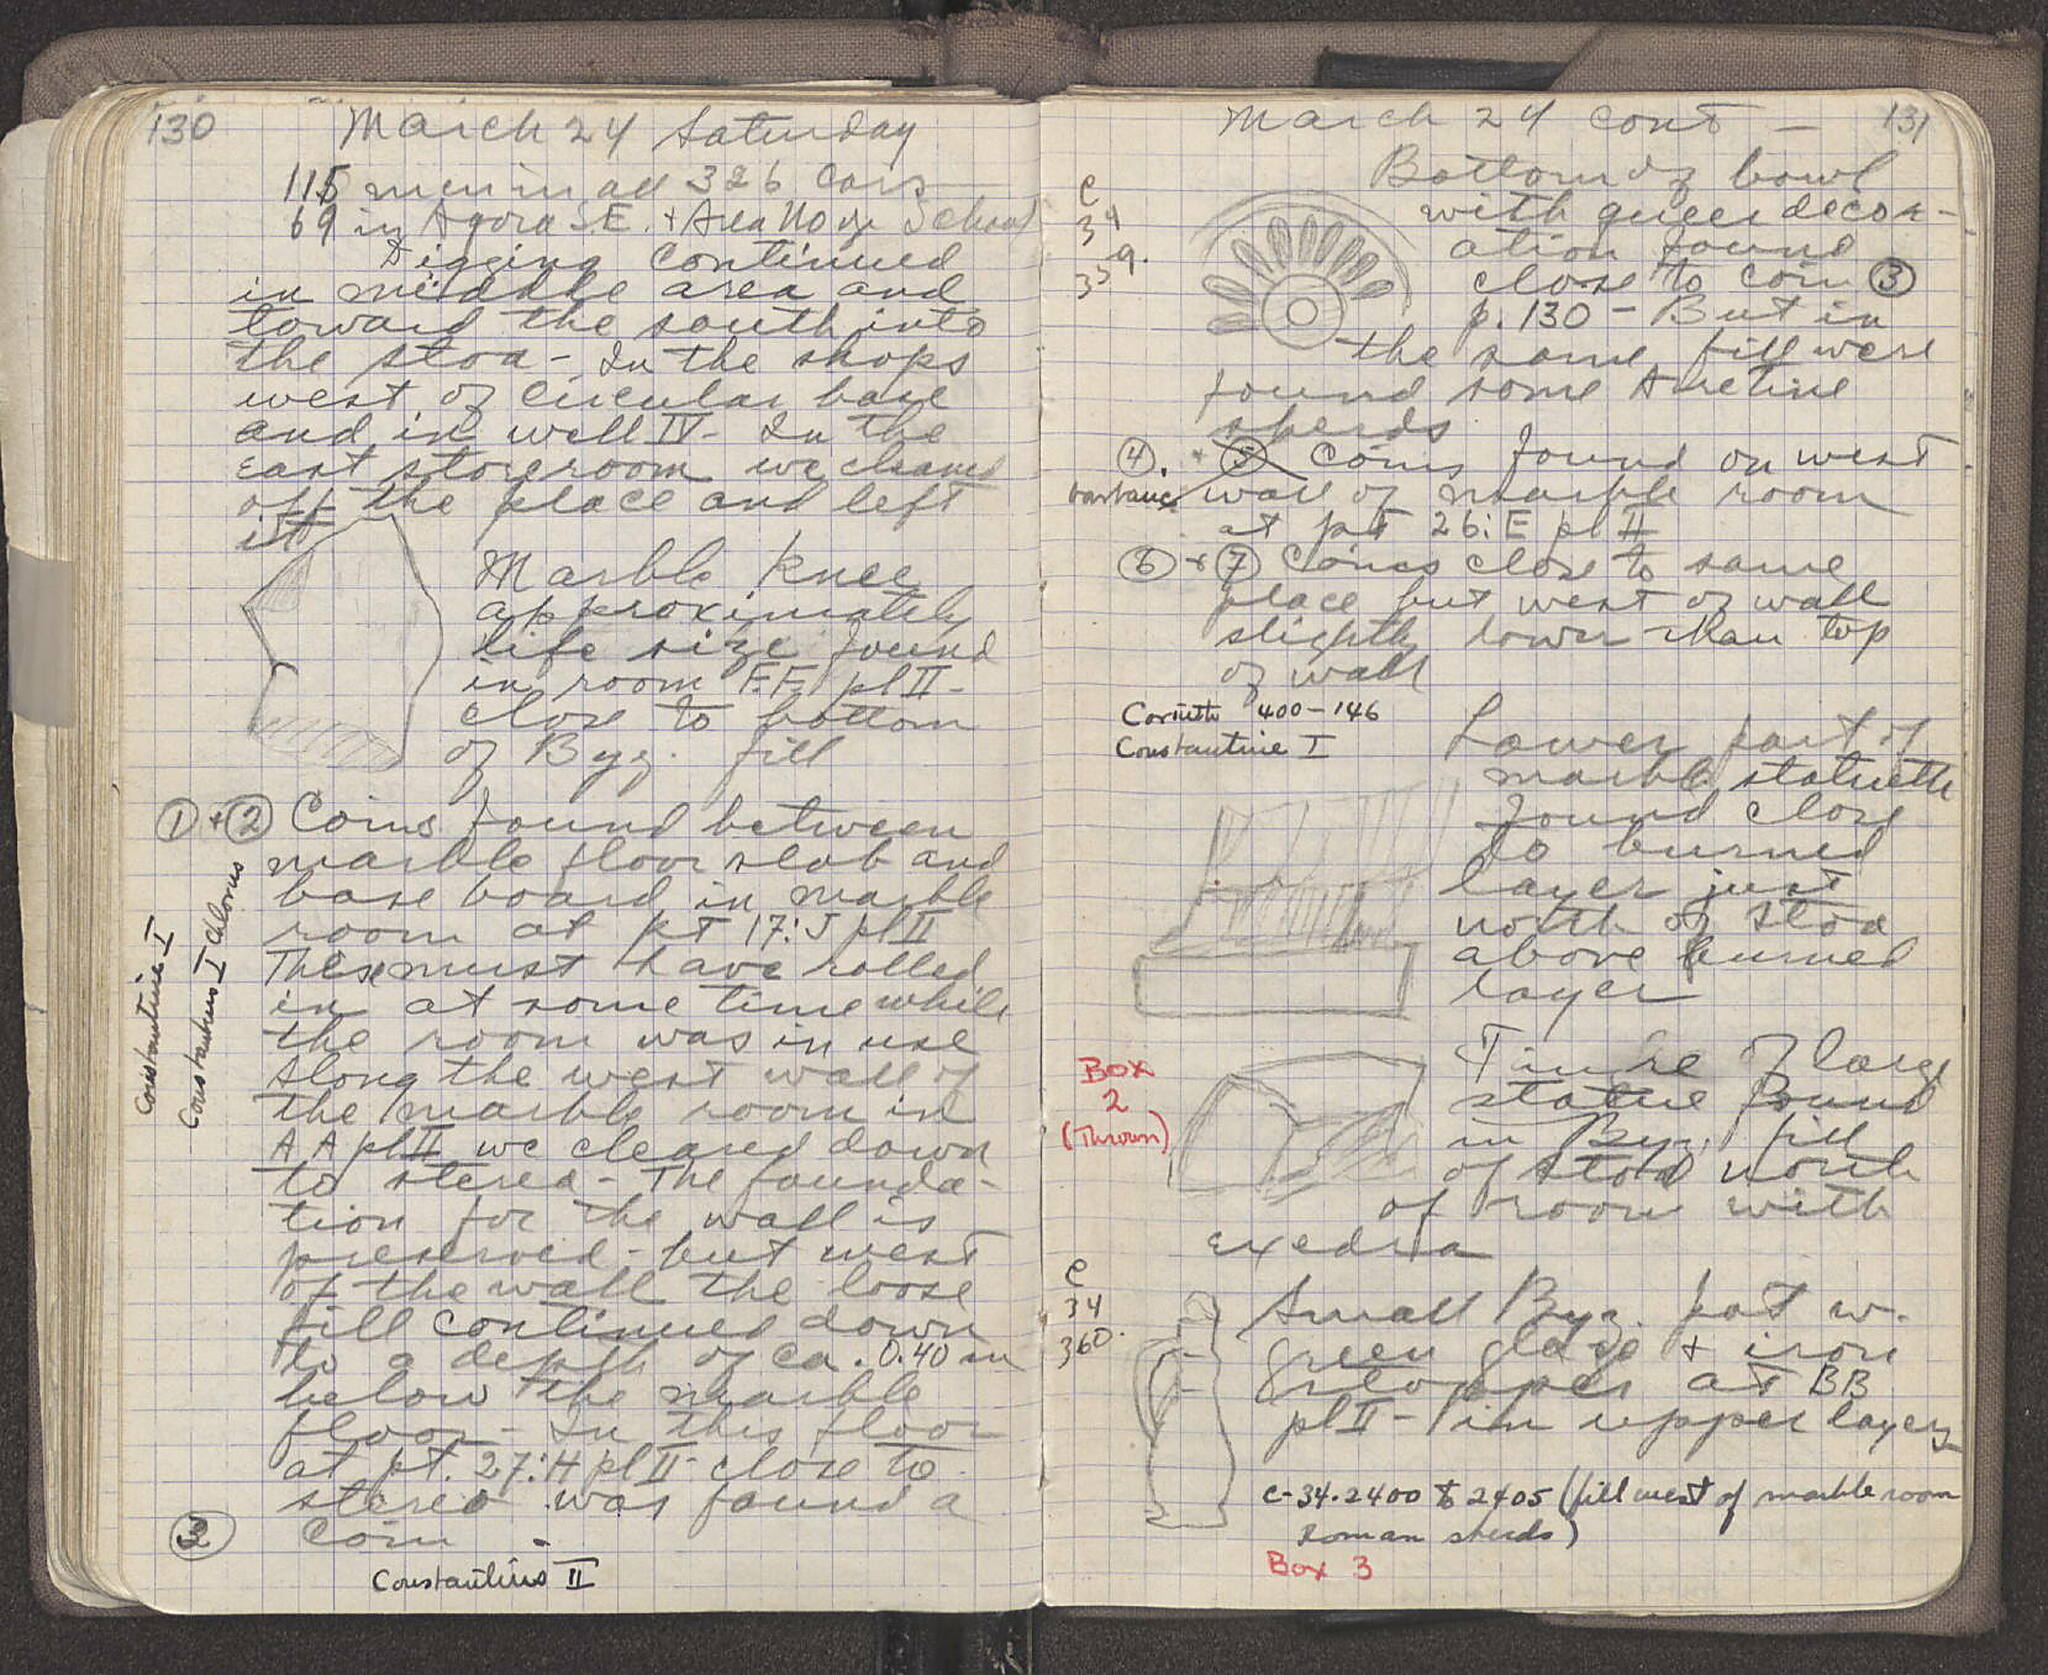 130
March 24 Saturday
115 men in all 326 cars
69 in Agora S.E. + Area No of School
Digging continued
in middle area and
toward the south into
the stoa - In the shops
west of circular base
and in well IV - In the
east storeroom we cleaned
off the place and left
it
Marble knee
approximately
life size found
in room F.F. pl II -
close to bottom
of Byz. fill
① + ② Coins found between
marble floor slab and
base board in marble
room at pt 17:J pl II
These must have rolled
in at some time while
the room was in use
Along the west wall of
the marble room in
AA pl II we cleared down
to stereo - The founda-
tion for the wall is
preserved - but west
of the wall the loose
fill continued down
to a depth of ca. 0.40 m
below the marble
floor - In this floor
at pt. 27:H pl II close to
stereo was found a
③ coin -
Constantius II
Constantine I
Constantius I Chlorus
March 24 cont - 131
C
34
359.
Bottom of bowl
with queer decor-
ation found
close to coin ③
p. 130 - But in
the same fill were
found some Arretine
sherds
④. + ⑤ Coins found on west
wall of marble room
at pt 26:E pl II
⑥ + ⑦ Coins close to same
place but west of wall
slightly lower than top
of wall
Corinth 400-146
Constantine I
Lower part of
marble statuette
found close
to burned
layer just
north of stoa
above burned
layer
Box
2
(Thrown)
of large
statue found
in Byz. fill
of stoa north
of room with
exedra
C
34
360.
Small Byz. pot w.
green glaze + iron
stopper at BB
pl II - in upper layers
C-34.2400 to 2405 (fill west of marble room
Roman sherds)
Box 3